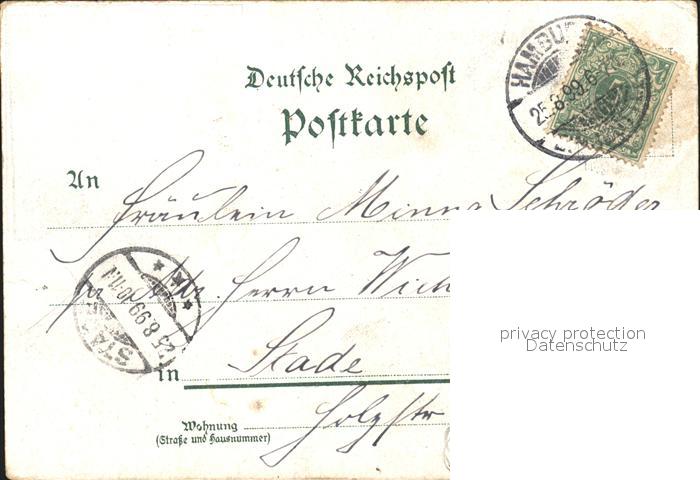 Deutsche Reichspost
Postkarte
HAMBU
25.8.99.6-7
An
Fräulein Minna Schröder
Herrn Wich
STA
25.8.99 10-11
privacy protection
Datenschutz
in Stade
Holzstr
Wohnung
(Straße und Hausnummer)